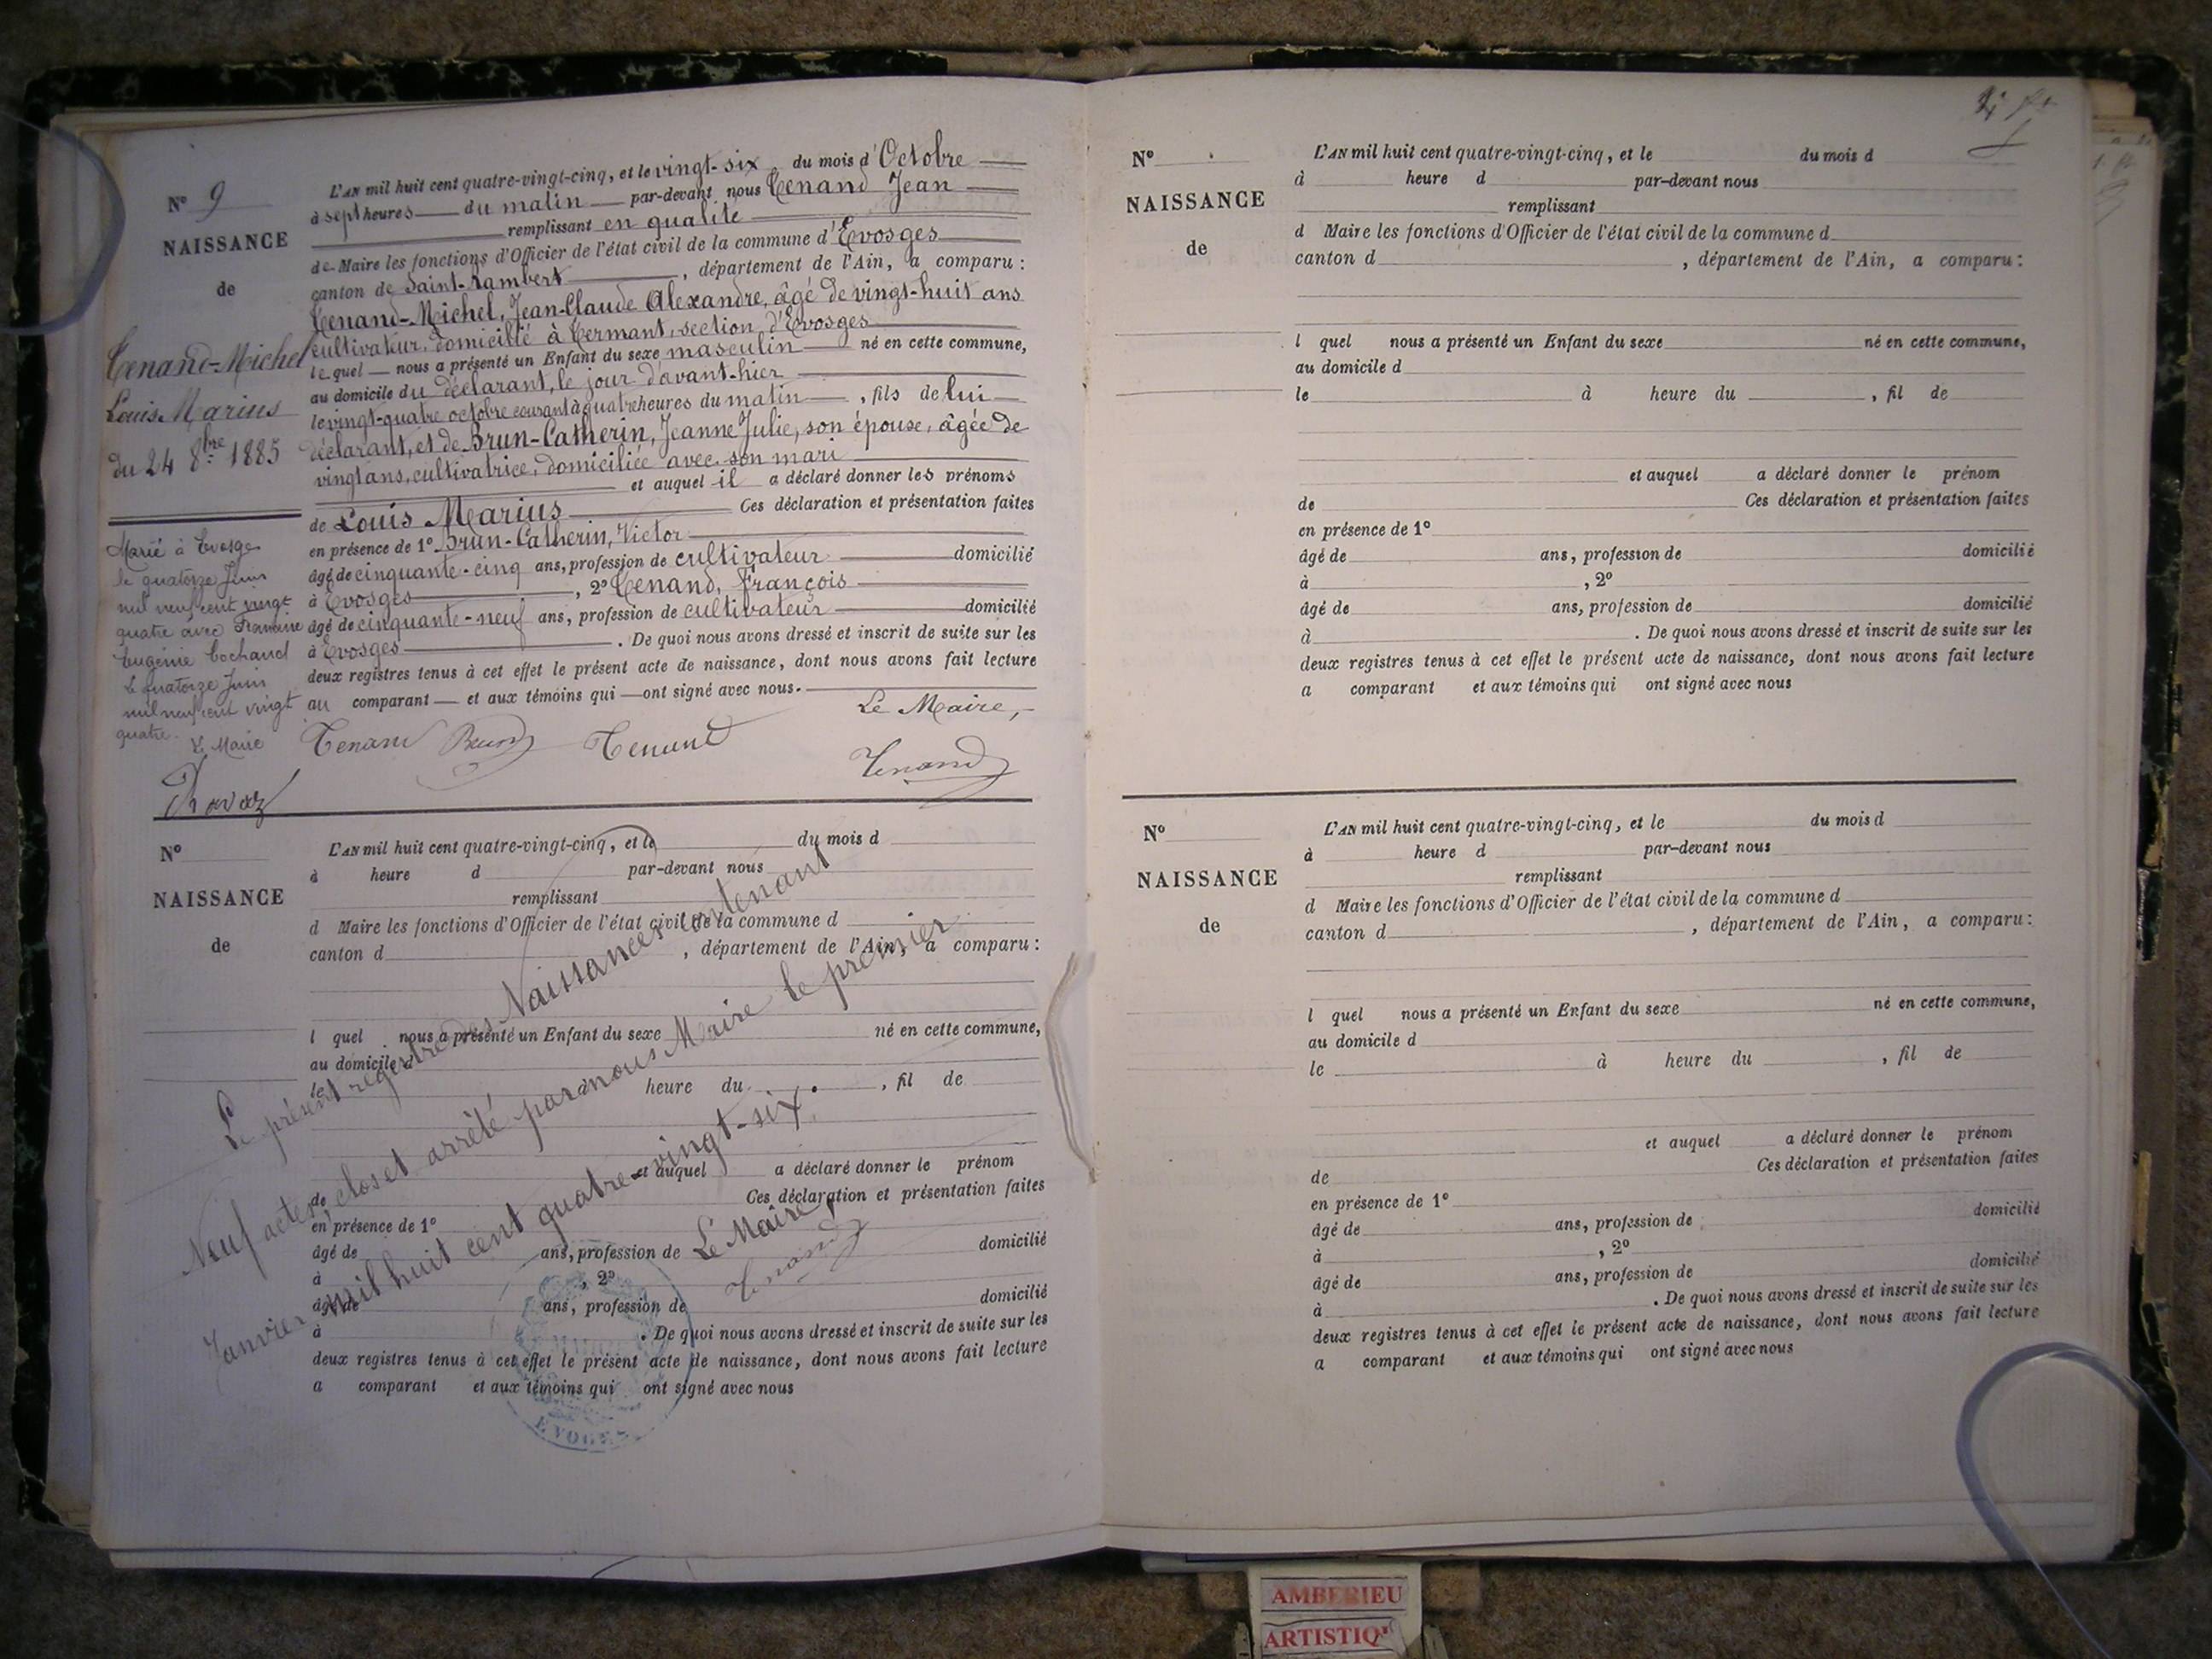 Nº 9
NAISSANCE
de
Tenand-Michel
Louis Marius
du 24 8bre 1885
Marié à Evosge
le quatorze Juin
mil neuf cent vingt
quatre avec
Eugénie Cochand
Le quatorze Juin
mil neuf cent vingt
quatre.
Le Maire
Ravaz
L'AN mil huit cent quatre-vingt-cinq, et le vingt-six du mois d'Octobre
à sept heures du matin par-devant nous Tenand Jean
remplissant en qualité
de Maire les fonctions d'Officier de l'état civil de la commune d'Evosges
canton de Saint-Rambert, département de l'Ain, a comparu :
Tenand-Michel, Jean-Claude Alexandre, âgé de vingt-huit ans
cultivateur, domicilié à Termant, section d'Evosges
lequel nous a présenté un Enfant du sexe masculin né en cette commune,
au domicile du déclarant, le jour d'avant-hier
le vingt-quatre octobre courant à quatre heures du matin, fils de lui
déclarant, et de Brun-Catherin, Jeanne Julie, son épouse, âgée de
vingt ans, cultivatrice, domiciliée avec son mari
et auquel il a déclaré donner les prénoms
de Louis Marius Ces déclaration et présentation faites
en présence de 1º Brun-Catherin, Victor
âgé de cinquante-cinq ans, profession de cultivateur domicilié
à Evosges, 2º Tenand, François
âgé de cinquante-neuf ans, profession de cultivateur domicilié
à Evosges. De quoi nous avons dressé et inscrit de suite sur les
deux registres tenus à cet effet le présent acte de naissance, dont nous avons fait lecture
au comparant et aux témoins qui ont signé avec nous.
Le Maire,
Tenand Brun Tenand
Tenand
Nº
NAISSANCE
de
L'AN mil huit cent quatre-vingt-cinq, et le du mois d
à heure d par-devant nous
remplissant
d Maire les fonctions d'Officier de l'état civil de la commune d
canton d , département de l'Ain, a comparu :
l quel nous a présenté un Enfant du sexe né en cette commune,
au domicile d
le à heure du , fil de
et auquel a déclaré donner le prénom
de Ces déclaration et présentation faites
en présence de 1º
âgé de ans, profession de domicilié
à , 2º
âgé de ans, profession de domicilié
à . De quoi nous avons dressé et inscrit de suite sur les
deux registres tenus à cet effet le présent acte de naissance, dont nous avons fait lecture
a comparant et aux témoins qui ont signé avec nous
Le présent registre des Naissances contenant
Neuf actes, clos et arrêté par nous Maire le premier
Janvier mil huit cent quatre-vingt-six.
Le Maire,
Tenand
Nº
NAISSANCE
de
L'AN mil huit cent quatre-vingt-cinq, et le du mois d
à heure d par-devant nous
remplissant
d Maire les fonctions d'Officier de l'état civil de la commune d
canton d , département de l'Ain, a comparu :
l quel nous a présenté un Enfant du sexe né en cette commune,
au domicile d
le à heure du , fil de
et auquel a déclaré donner le prénom
de Ces déclaration et présentation faites
en présence de 1º
âgé de ans, profession de domicilié
à , 2º
âgé de ans, profession de domicilié
à . De quoi nous avons dressé et inscrit de suite sur les
deux registres tenus à cet effet le présent acte de naissance, dont nous avons fait lecture
a comparant et aux témoins qui ont signé avec nous
Nº
NAISSANCE
de
L'AN mil huit cent quatre-vingt-cinq, et le du mois d
à heure d par-devant nous
remplissant
d Maire les fonctions d'Officier de l'état civil de la commune d
canton d , département de l'Ain, a comparu :
l quel nous a présenté un Enfant du sexe né en cette commune,
au domicile d
le à heure du , fil de
et auquel a déclaré donner le prénom
de Ces déclaration et présentation faites
en présence de 1º
âgé de ans, profession de domicilié
à , 2º
âgé de ans, profession de domicilié
à . De quoi nous avons dressé et inscrit de suite sur les
deux registres tenus à cet effet le présent acte de naissance, dont nous avons fait lecture
a comparant et aux témoins qui ont signé avec nous
AMBERIEU
ARTISTIQ